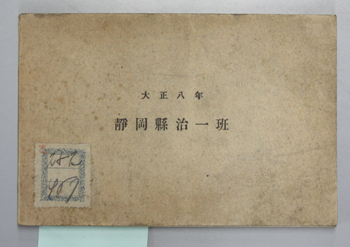 大正八年
靜岡縣治一班